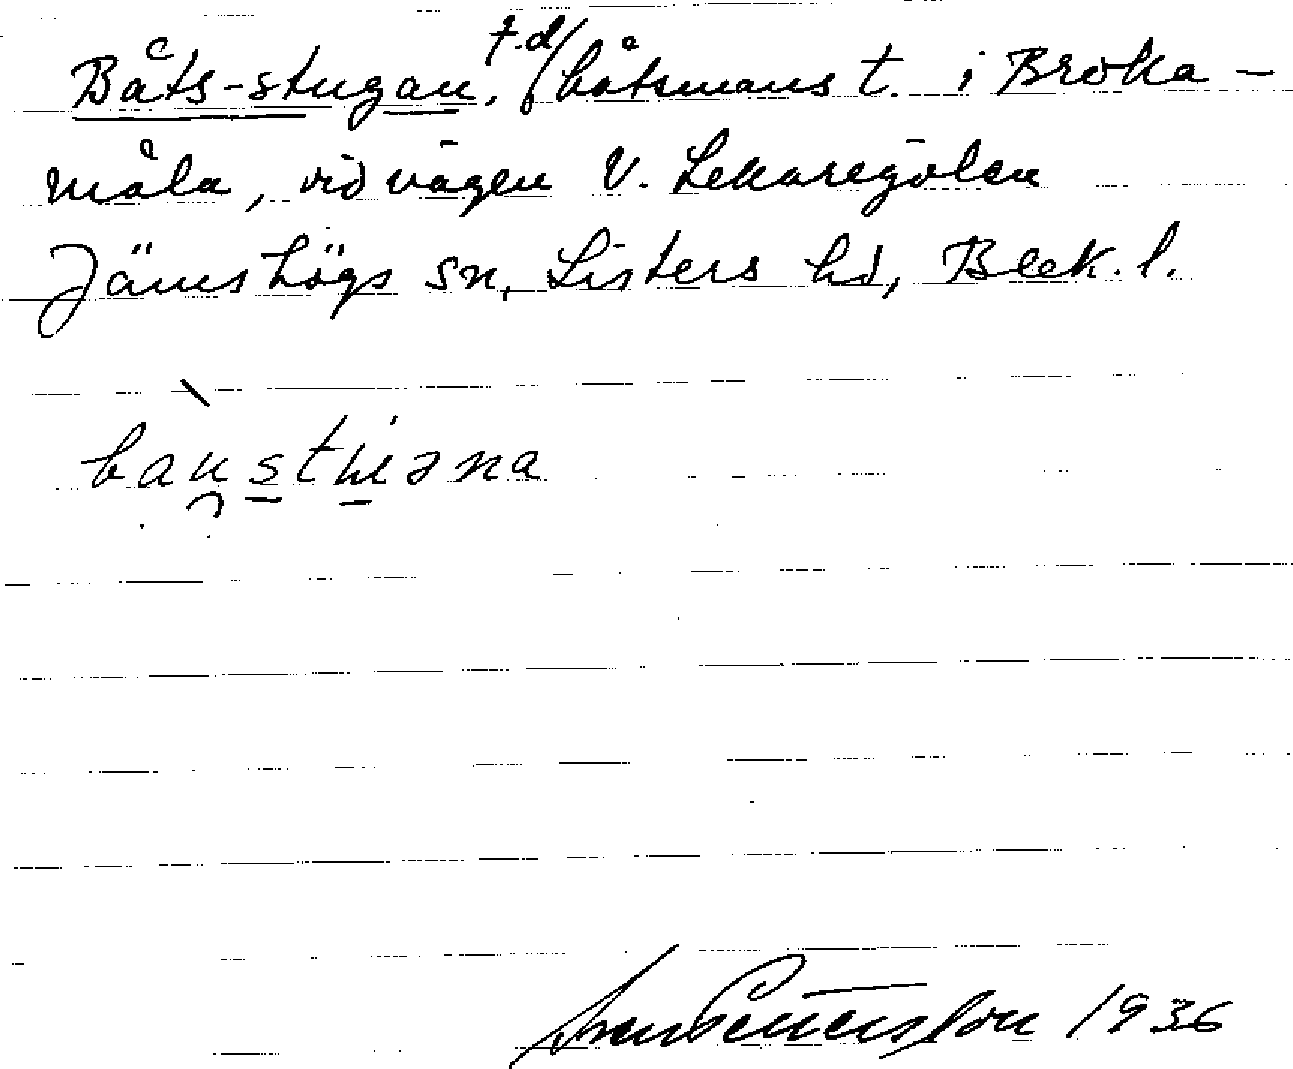 Båts-stugan, f.d. båtsmanst. i Broka-
måla, vid vägen V. Lekaregölen
Jämshögs sn, Listers hd, Blek. l.
Sven Pettersson 1936